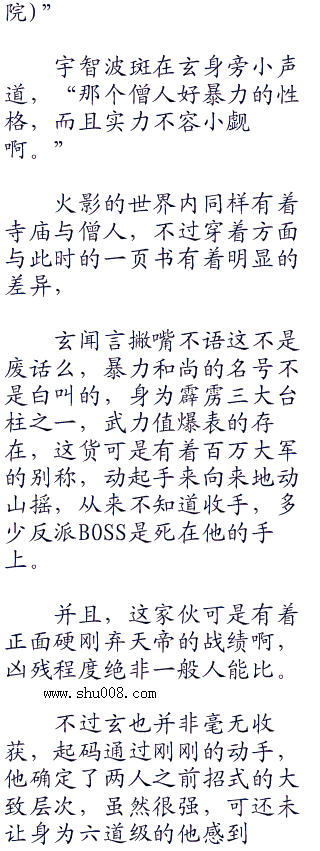 院)”
宇智波斑在玄身旁小声
道，“那个僧人好暴力的性
格，而且实力不容小觑
啊。”
火影的世界内同样有着
寺庙与僧人，不过穿着方面
与此时的一页书有着明显的
差异，
玄闻言撇嘴不语这不是
废话么，暴力和尚的名号不
是白叫的，身为霹雳三大台
柱之一，武力值爆表的存
在，这货可是有着百万大军
的别称，动起手来向来地动
山摇，从来不知道收手，多
少反派BOSS是死在他的手
上。
并且，这家伙可是有着
正面硬刚弃天帝的战绩啊，
凶残程度绝非一般人能比。
www.shu008.com
不过玄也并非毫无收
获，起码通过刚刚的动手，
他确定了两人之前招式的大
致层次，虽然很强，可还未
让身为六道级的他感到